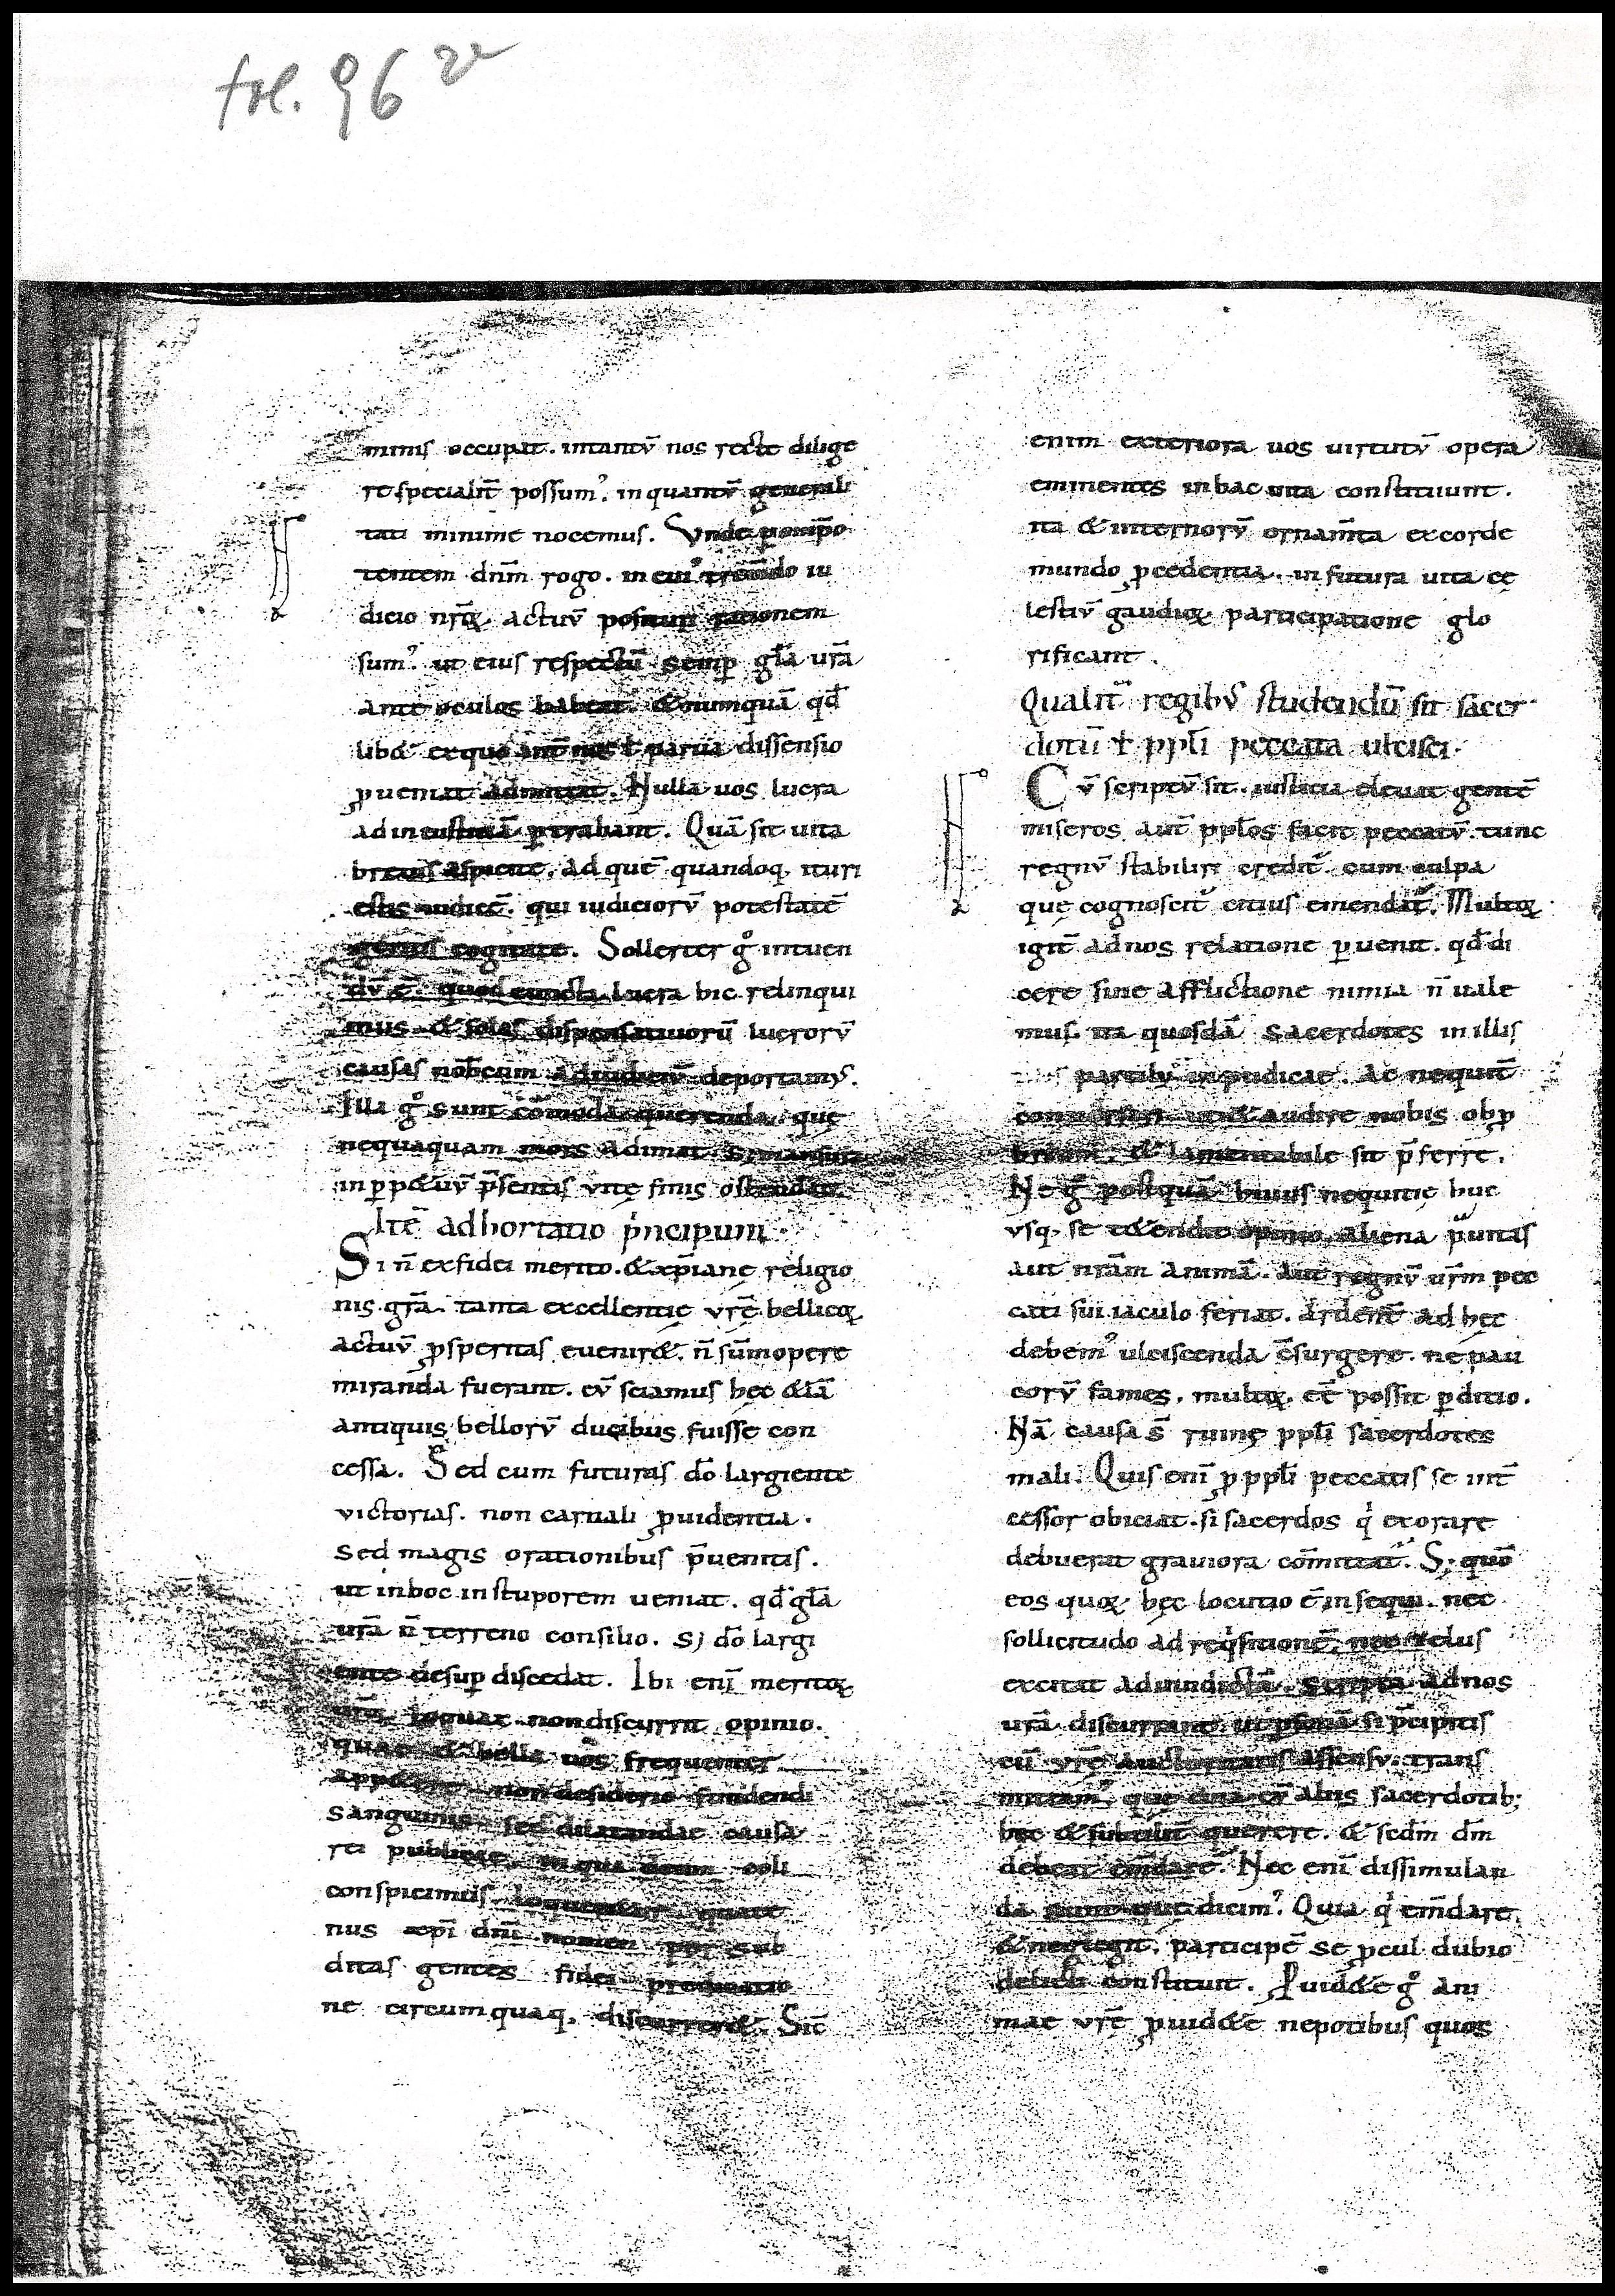 fol. 96 va
minis occupat. intantū nos recte dilige
re specialit̄ possum᾽. inquantū generali
tati minime nocemus. Vnde om̄ipo
tentem dn̄m rogo. in cui᾽ tremdo iu
dicio nr̄oꝝ actuū posituri rationem
sum᾽. ut eius respectū semꝑ gl̄a ur̄a
ante oculos habeat. & numquā qd̄
lib& exquo int̄ nos ł parua dissensio
ꝓueniat admittat. Nulla uos lucra
ad iniustitiā ꝑtrahant. Quā sit uita
breuis aspicite. ad quē quandoq. ituri
estis iudicē. qui iudiciorū potestatē
geritis cogitate. Sollerter g° intuen
dū ē. quod cuncta lucra hic relinqui
mus. & solas dispensatiuorū lucrorū
causas nobcum ad iudiciū deportamꝰ.
Illa g° sunt cōmoda querenda. quę
nequaquam mors adimat. s; mansura
in ꝑp&uū p̄sentis vitę finis ostendat.
Itē adhortatio pͥncipum.
Si n̄ ex fidei merito. & xp̄iane religio
nis gr̄a. tanta excellentię vr̄ę bellicoꝝ
actuū ꝓsperitas euenir&. n̄ sūmopere
miranda fuerant. cū sciamus hęc &iā
antiquis bellorū ducibus fuisse con
cessa. Sed cum futuras dō largiente
victorias. non carnali ꝓuidentia.
sed magis orationibus p̄uenitis.
ut in hoc in stuporem ueniat. qd̄ gl̄a
ur̄a n̄ terreno consilio. s; dō largi
ente desuꝑ discedat. Ibi enī meritoꝝ
ur̄oꝝ loquax non discurrit opinio.
quae & bella uos frequenter
app&ere non desiderio fundendi
sanguinis sed dilatandae causa
rei publicae. in qua dm̄ coli
conspicimus loquerentur quate
nus xp̄i dn̄i nomen per sub
ditas gentes fidei predicatio
ne circumquaq. discurrer&. Sic̄
enim exteriora uos uirtutū opera
eminentes in hac uita constituunt.
ita & internorū ornam̄ta ex corde
mundo ꝓcedentia. in futura uita cę
lestiū gaudioꝝ participatione glo
rificant.
Qualit̄ regibꝰ studendū sit sacer
dotū ł ppl̄i peccata ulcisci.
Cū scriptū sit. iustitia eleuat gentē
miseros aut̄ ppl̄os facit peccatū. tunc
regnū stabiliri credit᷑. cum culpa
quę cognoscit᷑ citius emendat᷑. Multoꝝ
igit̄ ad nos relatione ꝑuenit. qd̄ di
cere sine afflictione nimia n̄ uale
mus. ita quosdā sacerdotes in illis
partibꝰ inpudicae. ac nequit̄
conuersari ut & audire nobis obꝓ
brium. & lamentabile sit p̄ferre.
Ne g̊ postquā huius nequitię huc
vsq. se t&endit opinio. aliena prauitas
aut nr̄am animā. aut regnū ur̄m pec
cati sui iaculo feriat. ardent̄ ad hęc
debem᾽ ulciscenda c̄surgere. ne pau
corū fames. multoꝝ. eē possit ꝑditio.
Nā causa s̄ ruinę ppl̄i sacerdotes
mali. Quis enī ꝓ ppl̄i peccatis se int̄
cessor obiciat. si sacerdos qͥ exorare
debuerat grauiora cōmittat. S; quō
eos quoꝝ hęc locutio ē insequi. nec
sollicitudo ad reqͥsitionē, nec zelus
excitat ad uindictā. Scripta ad nos
ur̄a discurrant. ut ꝑsonā si p̄cipitis
cū vr̄ę auctoritatis assensu. trans
mittam᾽. que una cū aliis sacerdotib;
hęc & subtilit̄ querere. & sedm̄ dm̄
debeat em̄dare. Nec enī dissimulan
da sunt que dicim᾽. Quia qͥ em̄dare
& neglegit. participē se ꝓcul dubio
delicti constituit. Ꝓuid&e g° ani
mae vr̄ę ꝓuid&e nepotibus quos